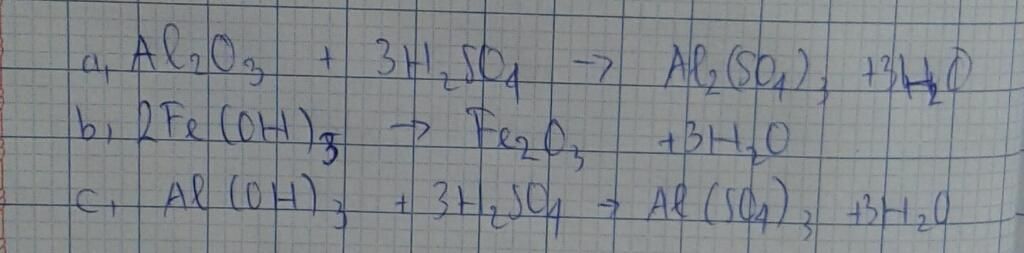 a, Al₂O₃ + 3H₂SO₄ → Al₂(SO₄)₃ +3H₂O
b, 2Fe(OH)₃ → Fe₂O₃ +3H₂O
c, Al(OH)₃ + 3H₂SO₄ → Al(SO₄)₃ +3H₂O